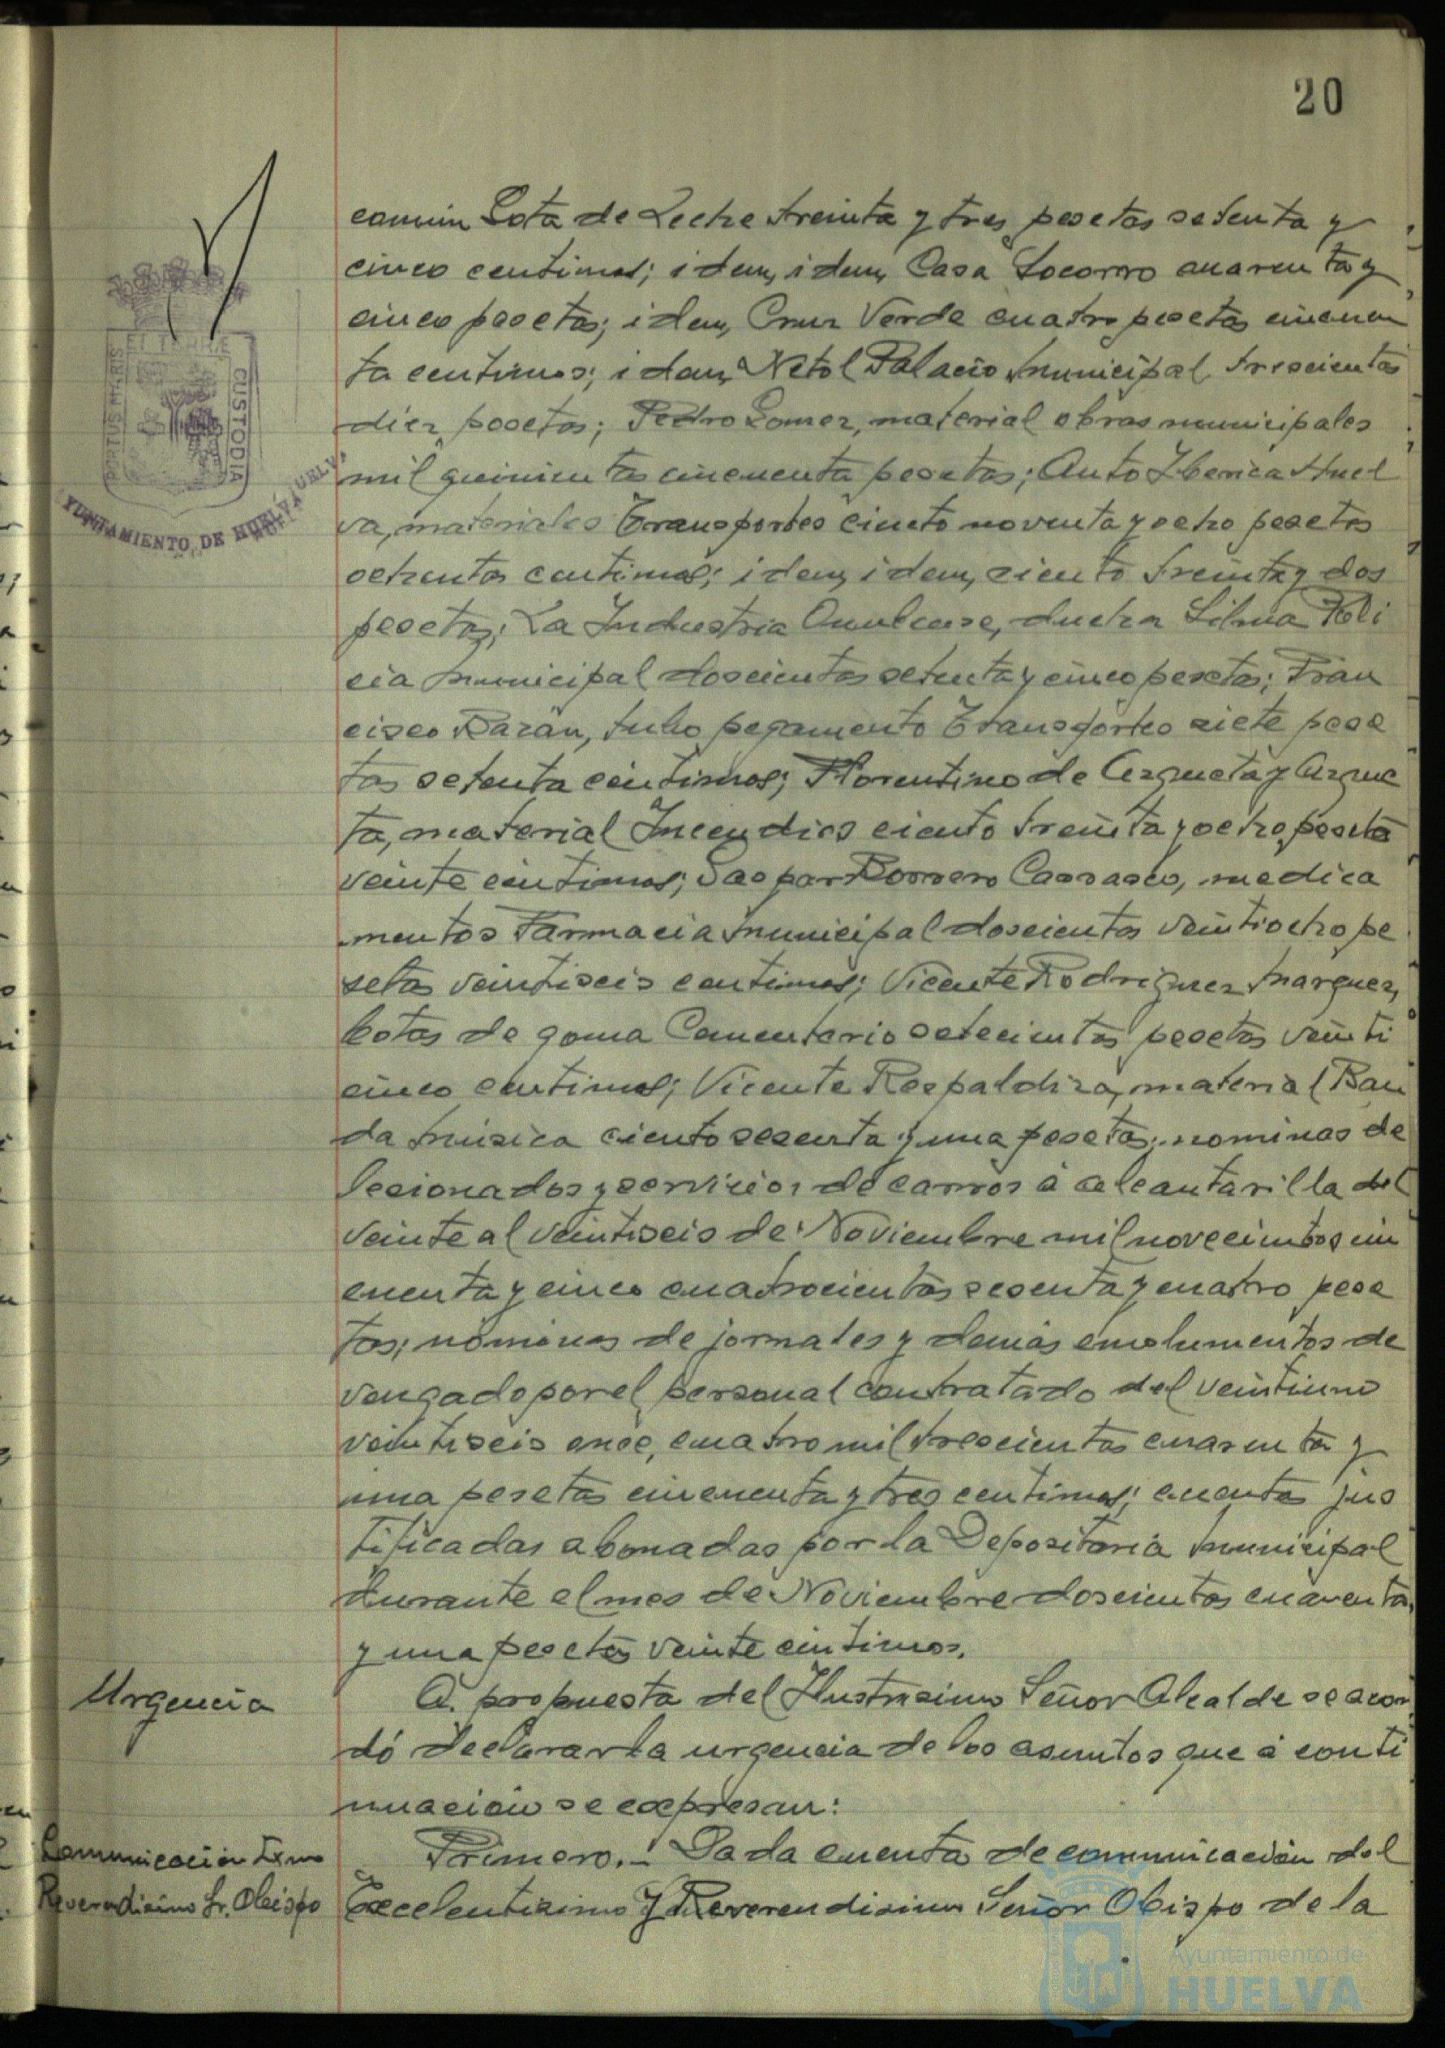 20
común Gota de Leche treinta y tres pesetas setenta y
cinco centimos; idem, idem, Casa Socorro cuarenta y
cinco pesetas; idem, Cruz Verde cuatro pesetas cincuen
ta centimos; idem, Netol Palacio Municipal trescientas
diez pesetas; Pedro Gomez, material obras municipales
mil quinientas cincuenta pesetas; Auto Iberica Huel
va, materiales Transportes ciento noventa y ocho pesetas
ochenta centimos; idem, idem, ciento treinta y dos
pesetas; La Industria Onubense, ducha Poli
cia Municipal doscientas setenta y cinco pesetas; Fran
cisco Bazán, tubo pegamento Transportes siete pese
tas setenta centimos; Florentino de Azqueta y Azque
ta, material Incendios ciento treinta y ocho pesetas
veinte centimos; Gaspar Borrero Carrasco, medica
mentos Farmacia Municipal doscientas veintiocho pe
setas veintiseis centimos; Vicente Rodriguez Marquez,
botas de goma Cementerio setecientas pesetas veinti
cinco centimos; Vicente Respaldiza, material Ban
da Música ciento sesenta y una pesetas; nominas de
lesionados y servicios de carros á alcantarilla del
veinte al veintiseis de Noviembre mil novecientos cin
cuenta y cinco cuatrocientas sesenta y cuatro pese
tas; nóminas de jornales y demás emolumentos de
vengado por el personal contratado del veintiuno
veintiseis once, cuatro mil trescientas cuarenta y
una pesetas cincuenta y tres centimos; cuentas jus
tificadas abonadas por la Depositaria Municipal
durante el mes de Noviembre doscientas cuarenta
y una pesetas veinte centimos.
Urgencia
A propuesta del Ilustrisimo Señor Alcalde se acor
dó declarar la urgencia de los asuntos que á conti
nuación se expresan:
Comunicación Exmo
Reverendisimo Sr. Obispo
Primero.- Dada cuenta de comunicación del
Excelentisimo y Reverendisimo Señor Obispo de la
PORTUS MARIS
ET TERRAE
CUSTODIA
AYUNTAMIENTO DE HUELVA
Ayuntamiento de
HUELVA